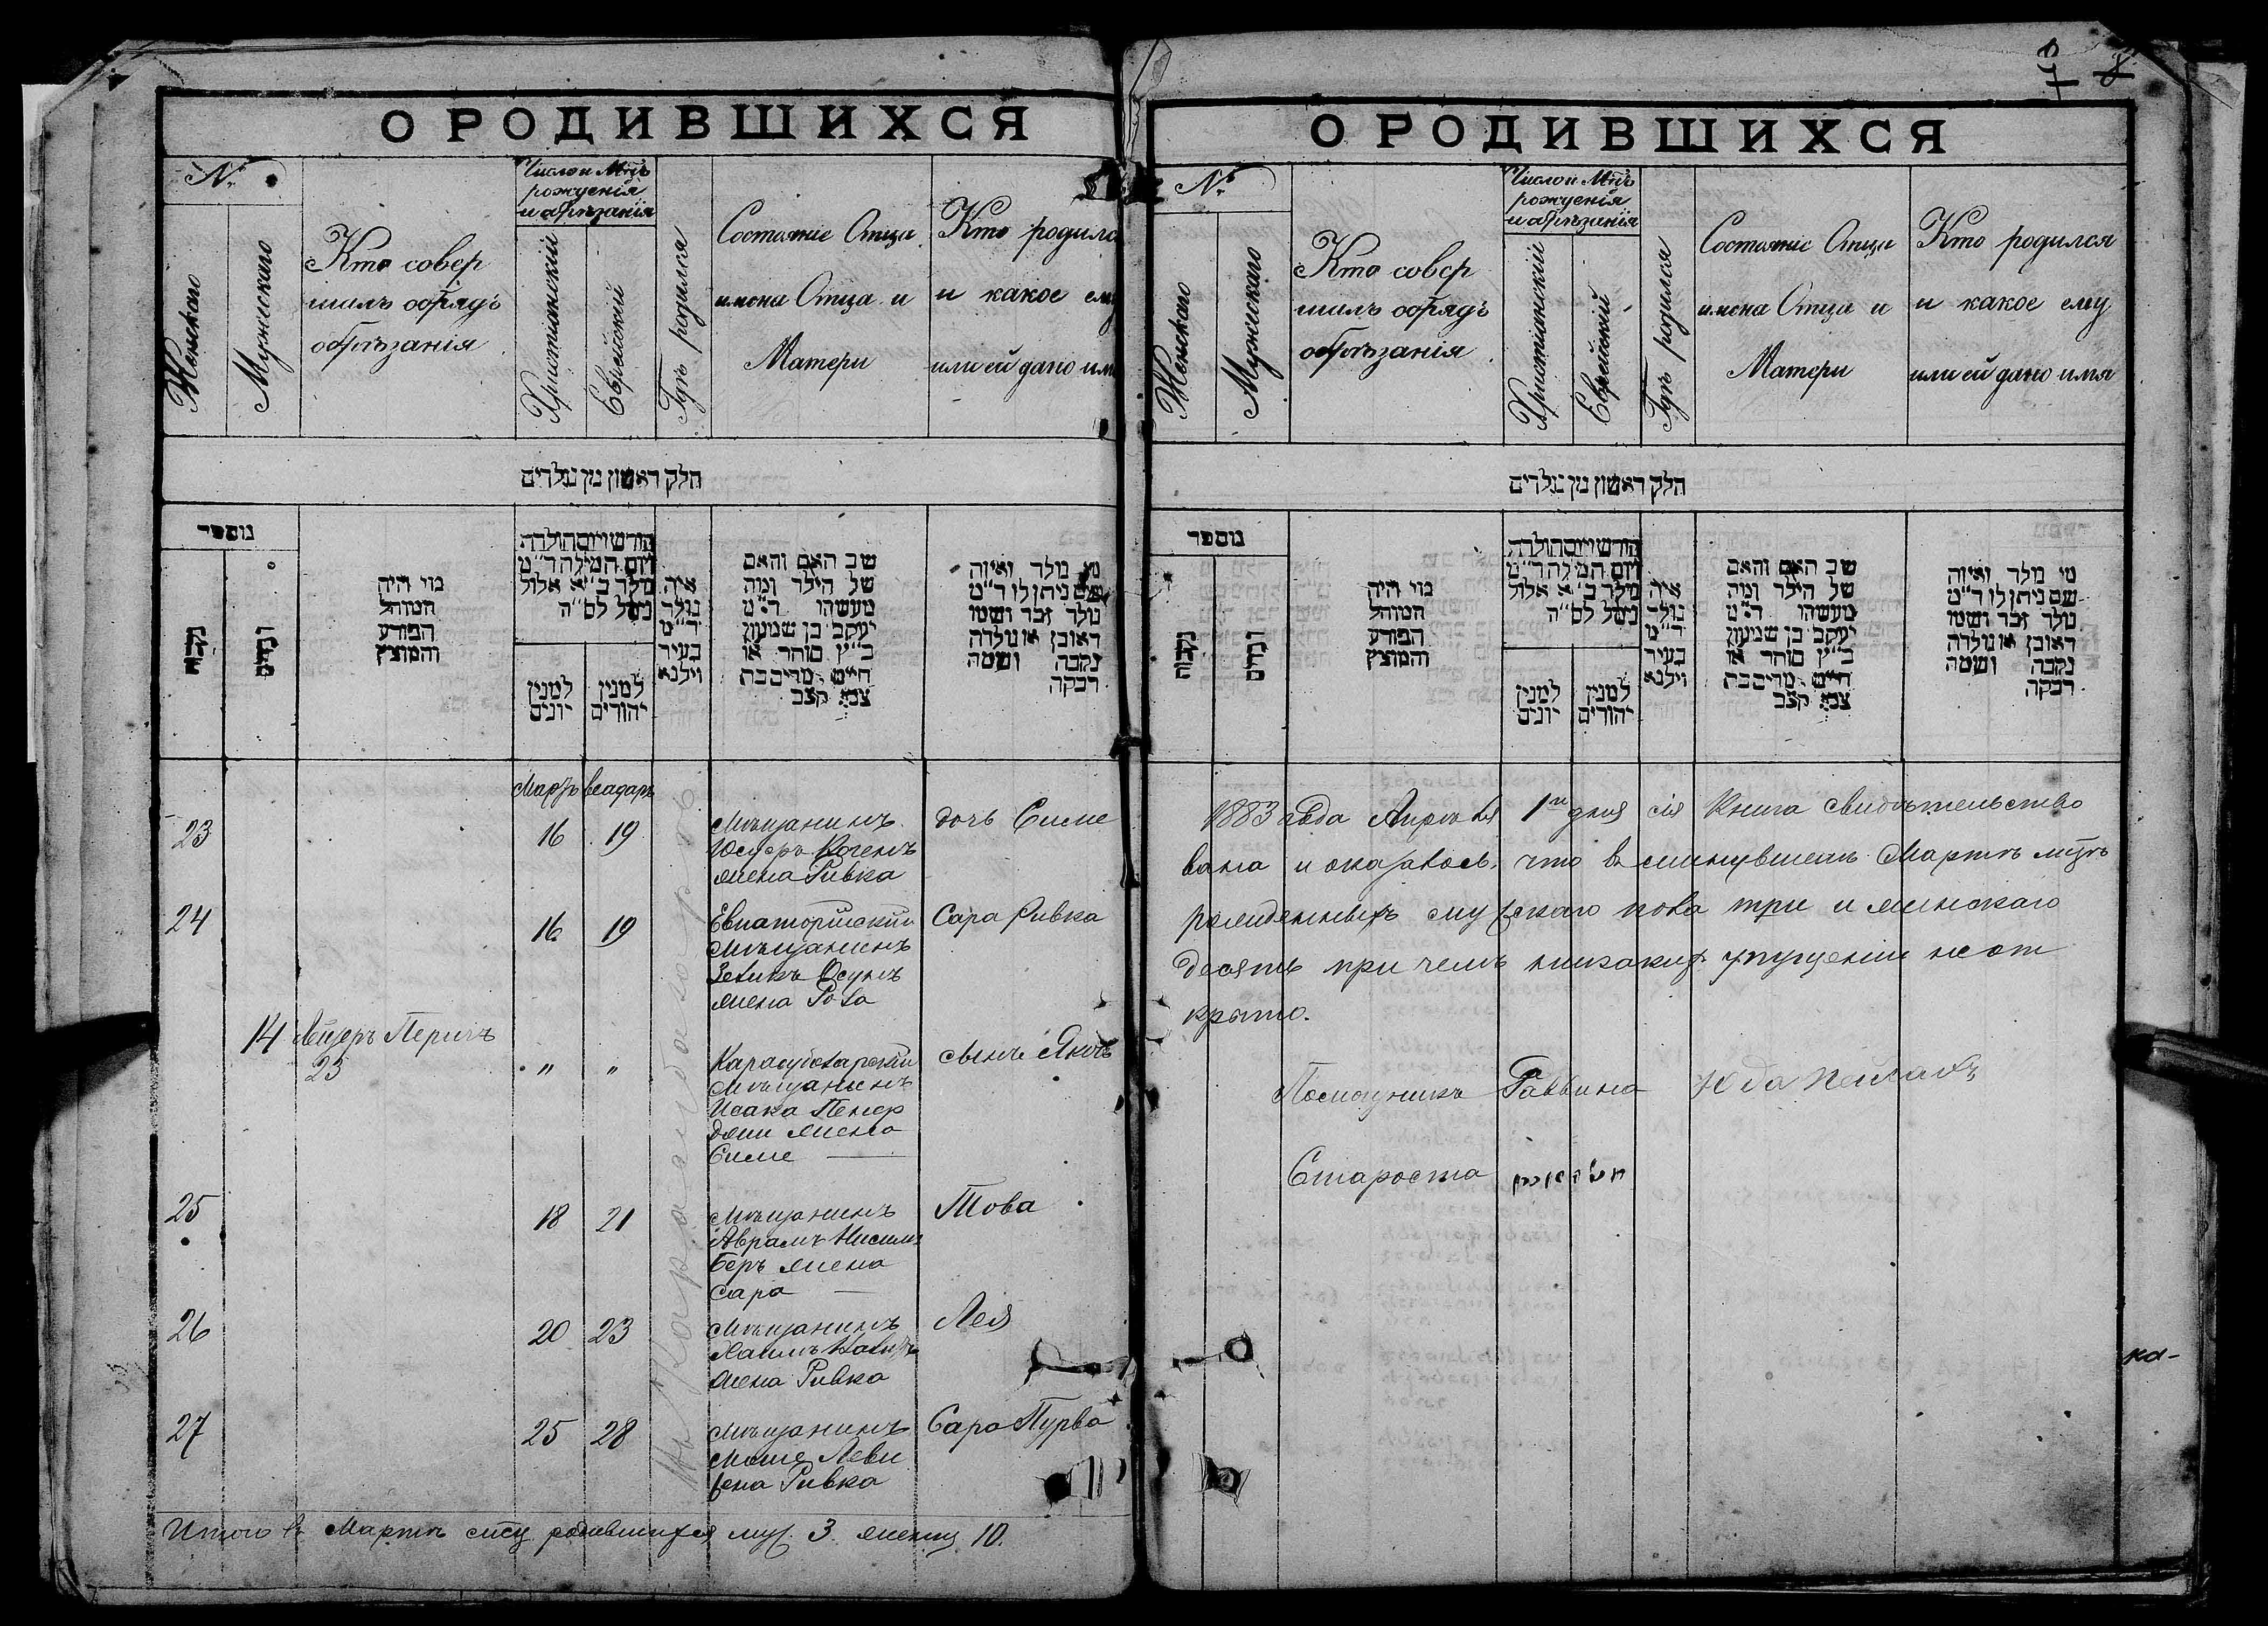 О РОДИВШИХСЯ
№
Женскаго
Мужескаго
Кто совер
шилъ обрядъ
обрѣзанія
Число и Мѣць
рожденія
и обрѣзанія
Христіанскій
Еврейскій
Гдѣ родился
Состояніе Отца
имена Отца и
Матери
Кто родился
и какое ему
или ей дано имя
חלק ראשון מן נולדים
מספר
נקבות
זכרים
מי היה
המוהל
הפורע
והמוצץ
חודש ויום הולדה
ויום המילה ד״מ
נולד ב״א אלול
נימל לס״ה
למנין
יונים
למנין
יהודים
איה
נולד
ד״מ
בעיר
ווילנא
שם האב והאם
של הילד ומה
מעשהו ד״מ
יעקב בן שמעון
כ״ץ סוחר או
חייט מרים בת
צבי קצב
מי נולד ואיזה
שם ניתן לו ד״מ
נולד זכר ושמו
ראובן או נולדה
נקבה ושמה
רבקה
Мартъ веадаръ
23 16 19 Мѣщанинъ дочь Симе
Юсуфъ Когенъ
жена Ривка
24 16 19 Евпаторійскій Сара Ривка
Мѣщанинъ
жена
14 Лейзеръ Перичъ
23 " " Карасубазарскій сынъ Яковъ
Мѣщанинъ
Исака Пенер
джи жена
Симе
25 18 21 Мѣщанинъ Това
Аврамъ Нисимъ
Беръ жена
Сара
26 20 23 Мѣщанинъ Лея
Хаимъ
жена Ривка
27 25 28 Мѣщанинъ Сара Пурва
Моше Леви
жена Ривка
Итого въ Мартѣ мсц родившихся муж. 3 женск 10.
О РОДИВШИХСЯ
7 8
№
Женскаго
Мужескаго
Кто совер
шилъ обрядъ
обрѣзанія
Число и Мѣць
рожденія
и обрѣзанія
Христіанскій
Еврейскій
Гдѣ родился
Состояніе Отца
имена Отца и
Матери
Кто родился
и какое ему
или ей дано имя
חלק ראשון מן נולדים
מספר
נקבות
זכרים
מי היה
המוהל
הפורע
והמוצץ
חודש ויום הולדה
ויום המילה ד״מ
נולד ב״א אלול
נימל לס״ה
למנין
יונים
למנין
יהודים
איה
נולד
ד״מ
בעיר
ווילנא
שם האב והאם
של הילד ומה
מעשהו ד״מ
יעקב בן שמעון
כ״ץ סוחר או
חייט מרים בת
צבי קצב
מי נולד ואיזה
שם ניתן לו ד״מ
נולד זכר ושמו
ראובן או נולדה
נקבה ושמה
רבקה
1883 года Апрѣля 1го дня сія Книга свидѣтельство
вана и оказалось, что въ минувшемъ Мартѣ мцѣ
рожденныхъ мужскаго пола три и женскаго
десять при чемъ никакихъ упущеніи не от
крыто.
Помощникъ Раввина Юда
Староста
ка-